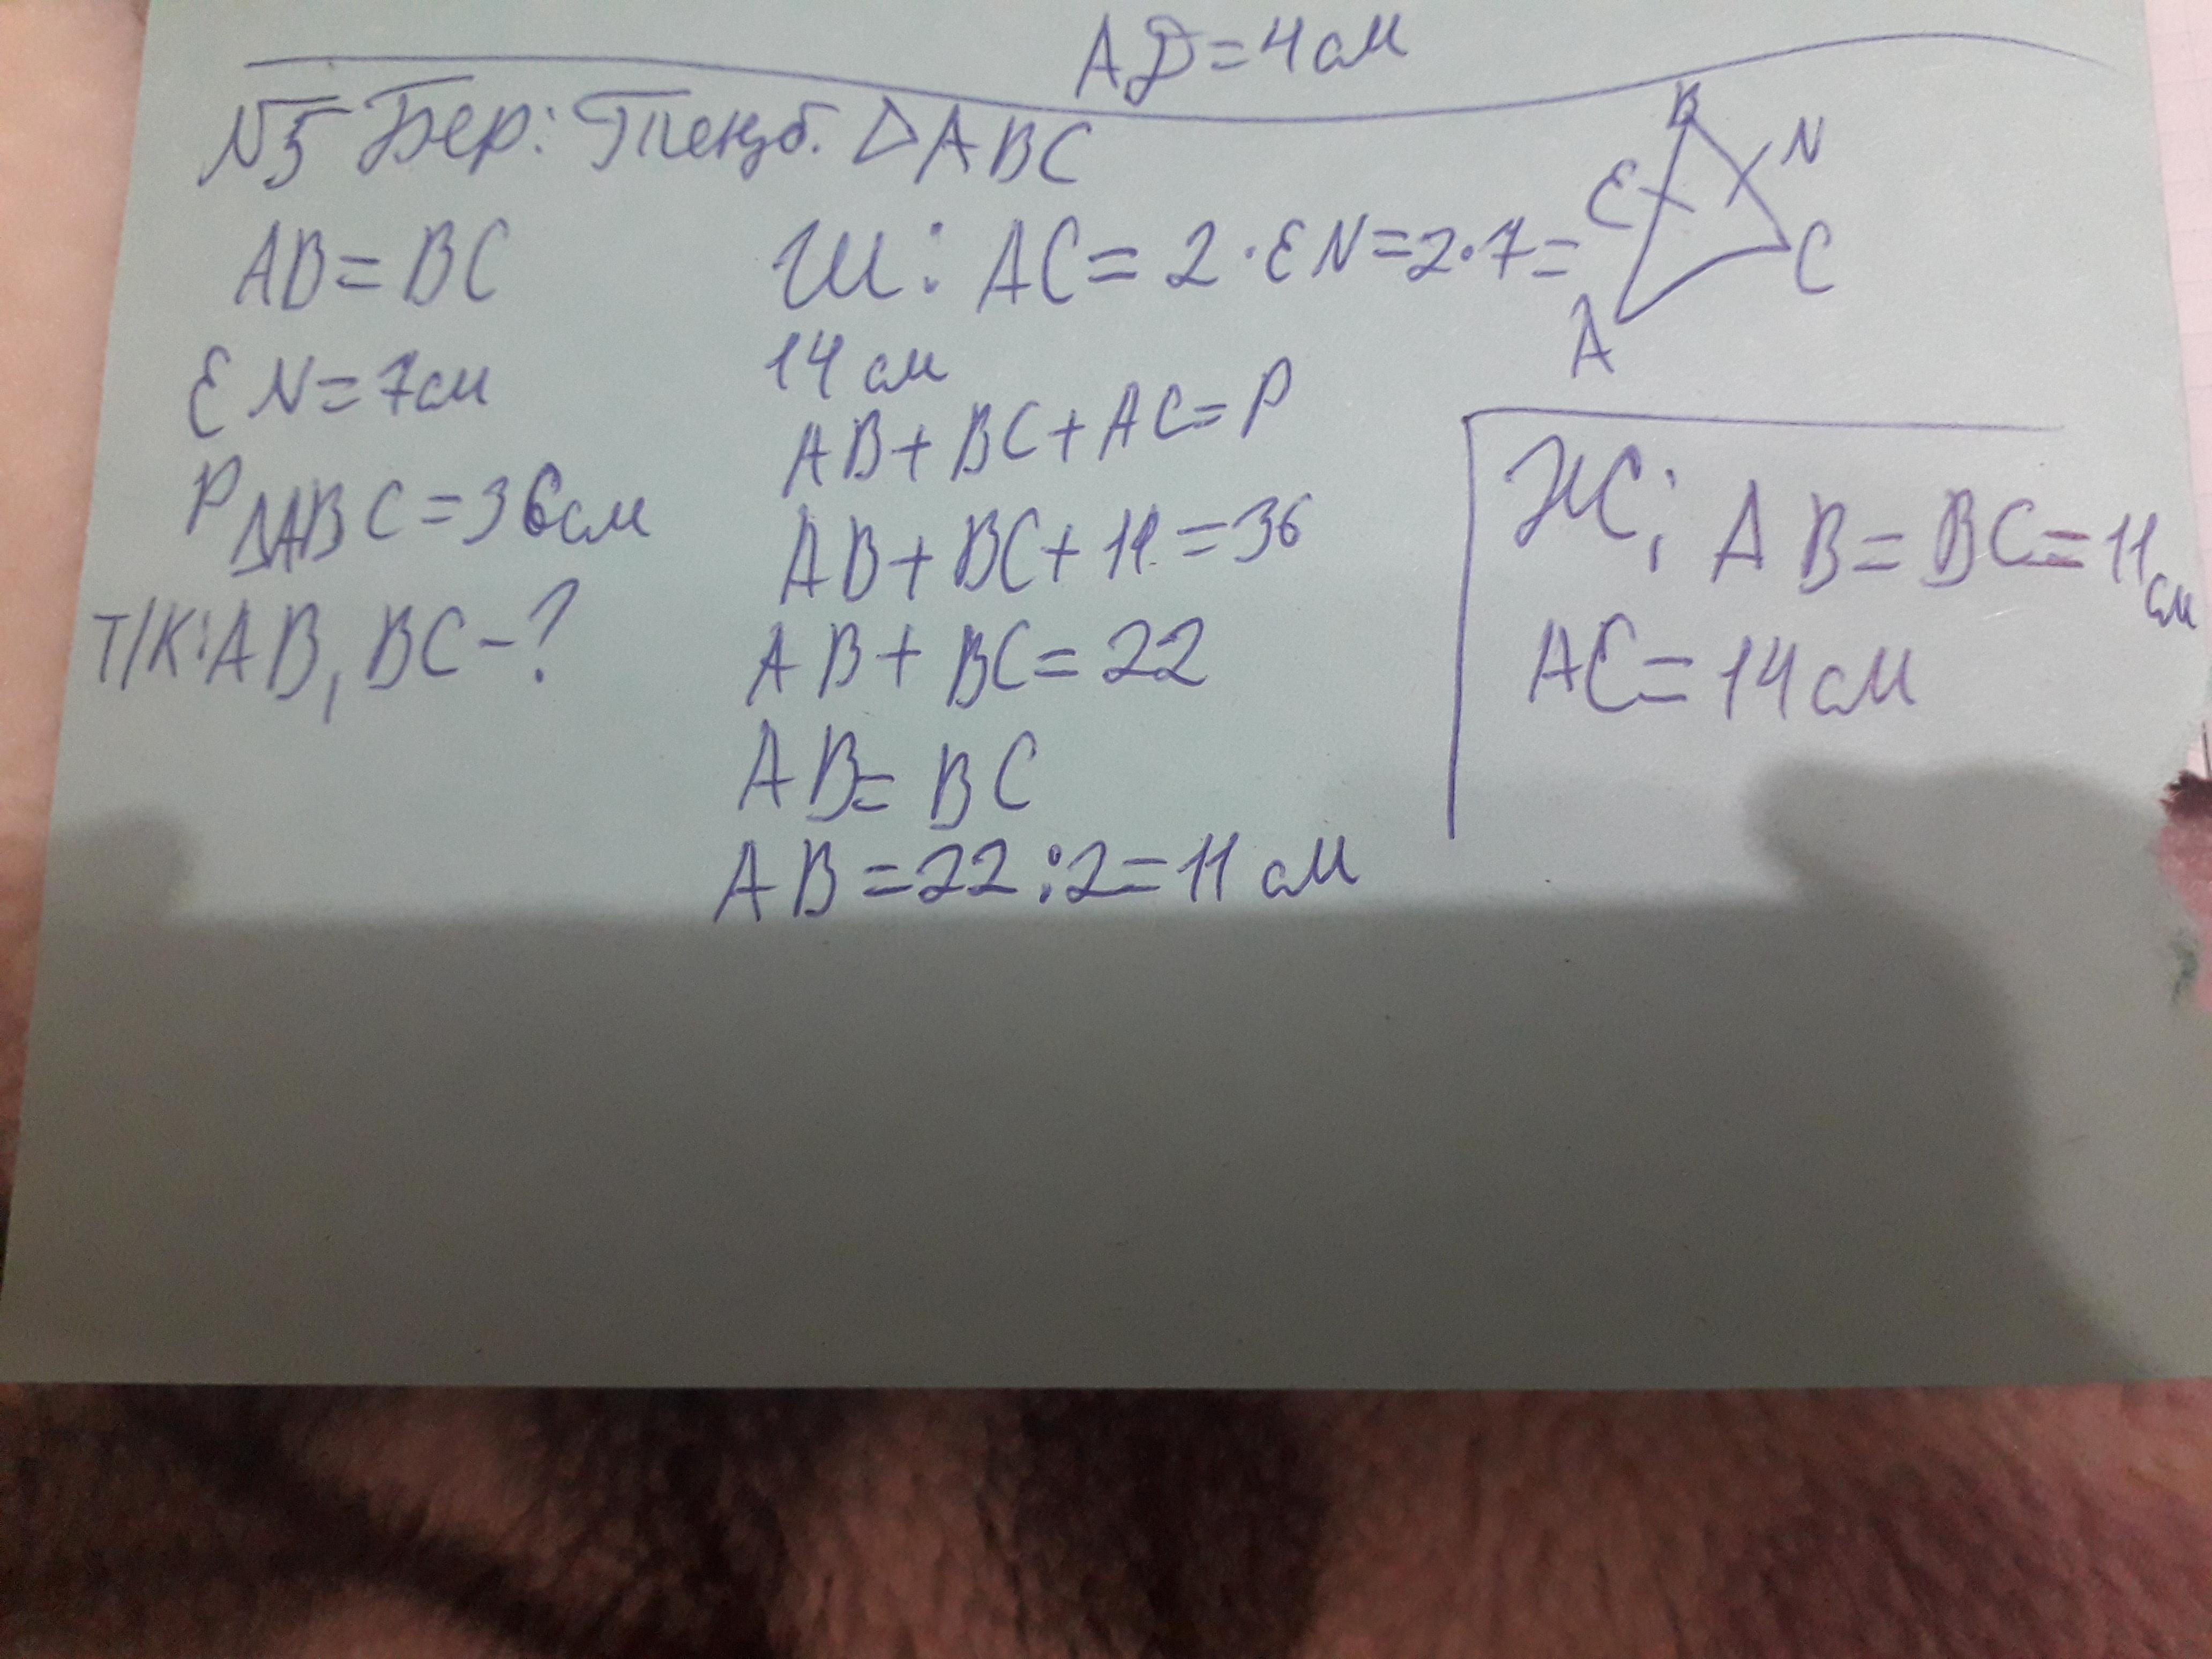 AD=4см
№5 Бер: Теңб. △ABC
AB=BC
EN=7см
P△ABC=36см
Т/К: AB, BC-?
Ш: AC=2·EN=2·7=
14 см
AB+BC+AC=P
AB+BC+14=36
AB+BC=22
AB=BC
AB=22:2=11 см
B
E
N
A
C
Ж: AB=BC=11 см
AC=14 см